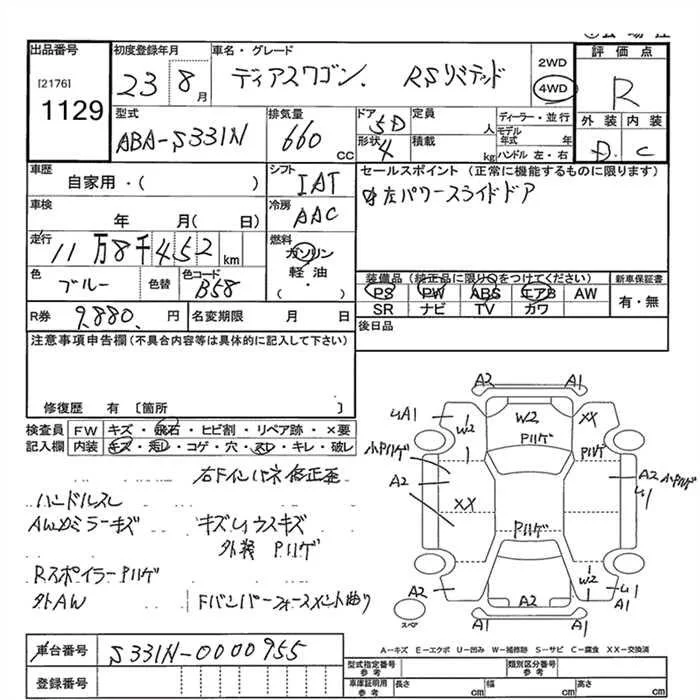 出品番号
[2176]
1129
初度登録年月
23 8月
車名・グレード
ディアスワゴン. RSリミテッド
2WD
4WD
評価点
R
外装 内装
D. C
型式
ABA-S331N
排気量
660 CC
ドア 5D
形状 4
定員 人
積載 kg
ディーラー・並行
モデル年式 年
ハンドル 左・右
車歴
自家用・( )
シフト
IAT
セールスポイント (正常に機能するものに限ります)
左パワースライドドア
車検
年 月( 日)
冷房
AAC
走行
11万8千452km
燃料
ガソリン
軽油
( ・ )
色
ブルー
色替
色コード
B58
装備品(純正品に限り○をつけてください)
PS PW ABS エアB AW
SR ナビ TV カワ
新車保証書
有・無
R券 9,880. 円
名変期限 月 日
後日品
注意事項申告欄(不具合内容等は具体的に記入して下さい)
修復歴 有 〔箇所 〕
検査員記入欄
FW キズ・飛石・ヒビ割・リペア跡・×要
内装 キズ・汚レ・コゲ・穴・スレ・キレ・破レ
ハンドルスレ
AWミラーキズ
キズUウスキズ
外装 Pハゲ
RスポイラーPハゲ
外AW
Fバンパーフォースメント曲り
A2 A1
UA1 W2 W2 Pハゲ XX Pハゲ
小Pハゲ
A2 XX
A2 小Pハゲ
U1
Pハゲ
A2 A2 W2 U1 A1
A1 A1
スペア
A-キズ E-エクボ U-凹み W-補修跡 S-サビ C-腐食 XX-交換済
車台番号 S331N-0000955
登録番号
型式指定番号 参考
類別区分番号 参考
車庫証明用 参考
長さ cm
幅 cm
高さ cm